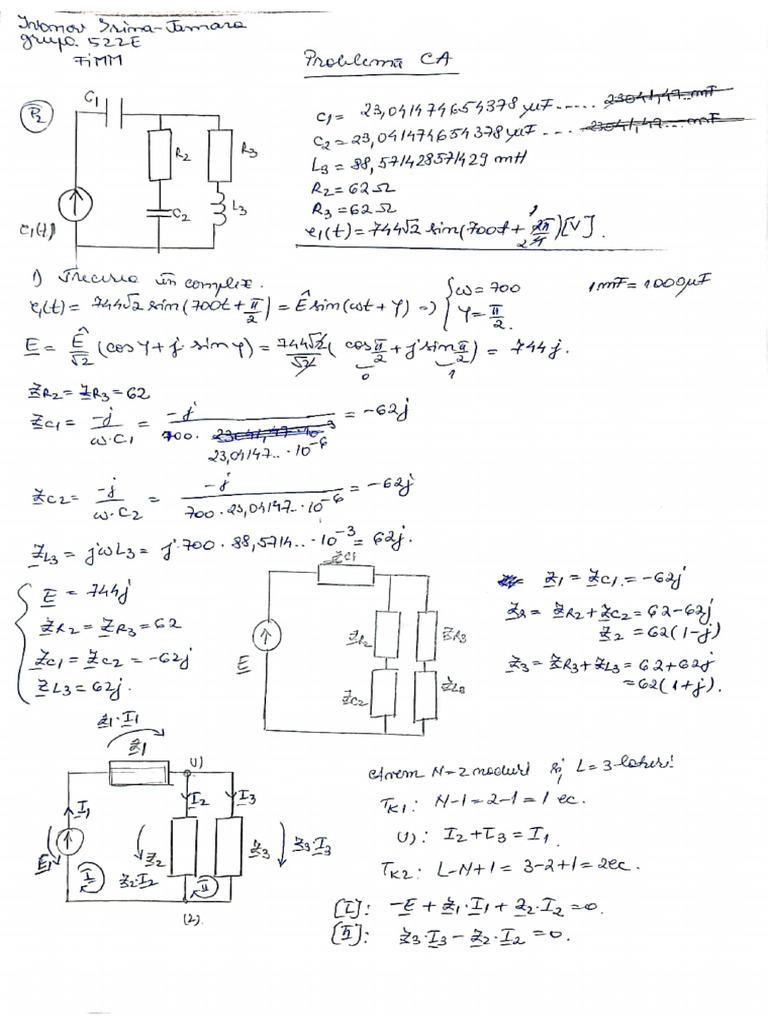 Ivanov Irina-Tamara
grupa 522E
FIMM
Problemă CA
P2
C1
R2
R3
C2
L3
e1(t)
C1= 23,041474654378 μF ..... 23041,47..mF
C2=23,041474654378 μF ... 23041,47... mF
L3=88,571428571429 mH
R2=62Ω
R3=62Ω
e1(t)=744√2 sin(700t+ π/2)[V].
1) Trecerea în complex.
e1(t)= 744√2 sin(700t+π/2)=Ê sin(ωt+φ) => { ω=700
φ=π/2.
1mF=1000μF
E= Ê/√2 (cosφ+j·sinφ)= 744√2/√2 ( cos π/2 + j sin π/2 ) = 744j.
0 1
ZR2=ZR3=62
ZC1= -j/ω·C1 = -j/700· 23041,47·10⁻³ = -62j
23,04147..·10⁻⁶
ZC2= -j/ω·C2 = -j/700·23,04147..·10⁻⁶ = -62j
ZL3= jωL3= j·700·88,5714..·10⁻³= 62j.
E = 744j
ZR2=ZR3=62
ZC1=ZC2=-62j
ZL3=62j.
ZC1
E
ZR2
ZR3
ZC2
ZL3
Z1=ZC1=-62j
Z2=ZR2+ZC2=62-62j
Z2=62(1-j)
Z3=ZR3+ZL3=62+62j
=62(1+j).
Z1·I1
Z1
(1)
I1
I2
I3
E1
I
Z2
Z2·I2
II
Z3
Z3·I3
(2).
Avem N=2 noduri și L=3 laturi:
TK1: N-1=2-1=1 ec.
(1): I2+I3=I1.
TK2: L-N+1=3-2+1=2ec.
[I]: -E+Z1·I1+Z2·I2=0.
[II]: Z3·I3-Z2·I2=0.